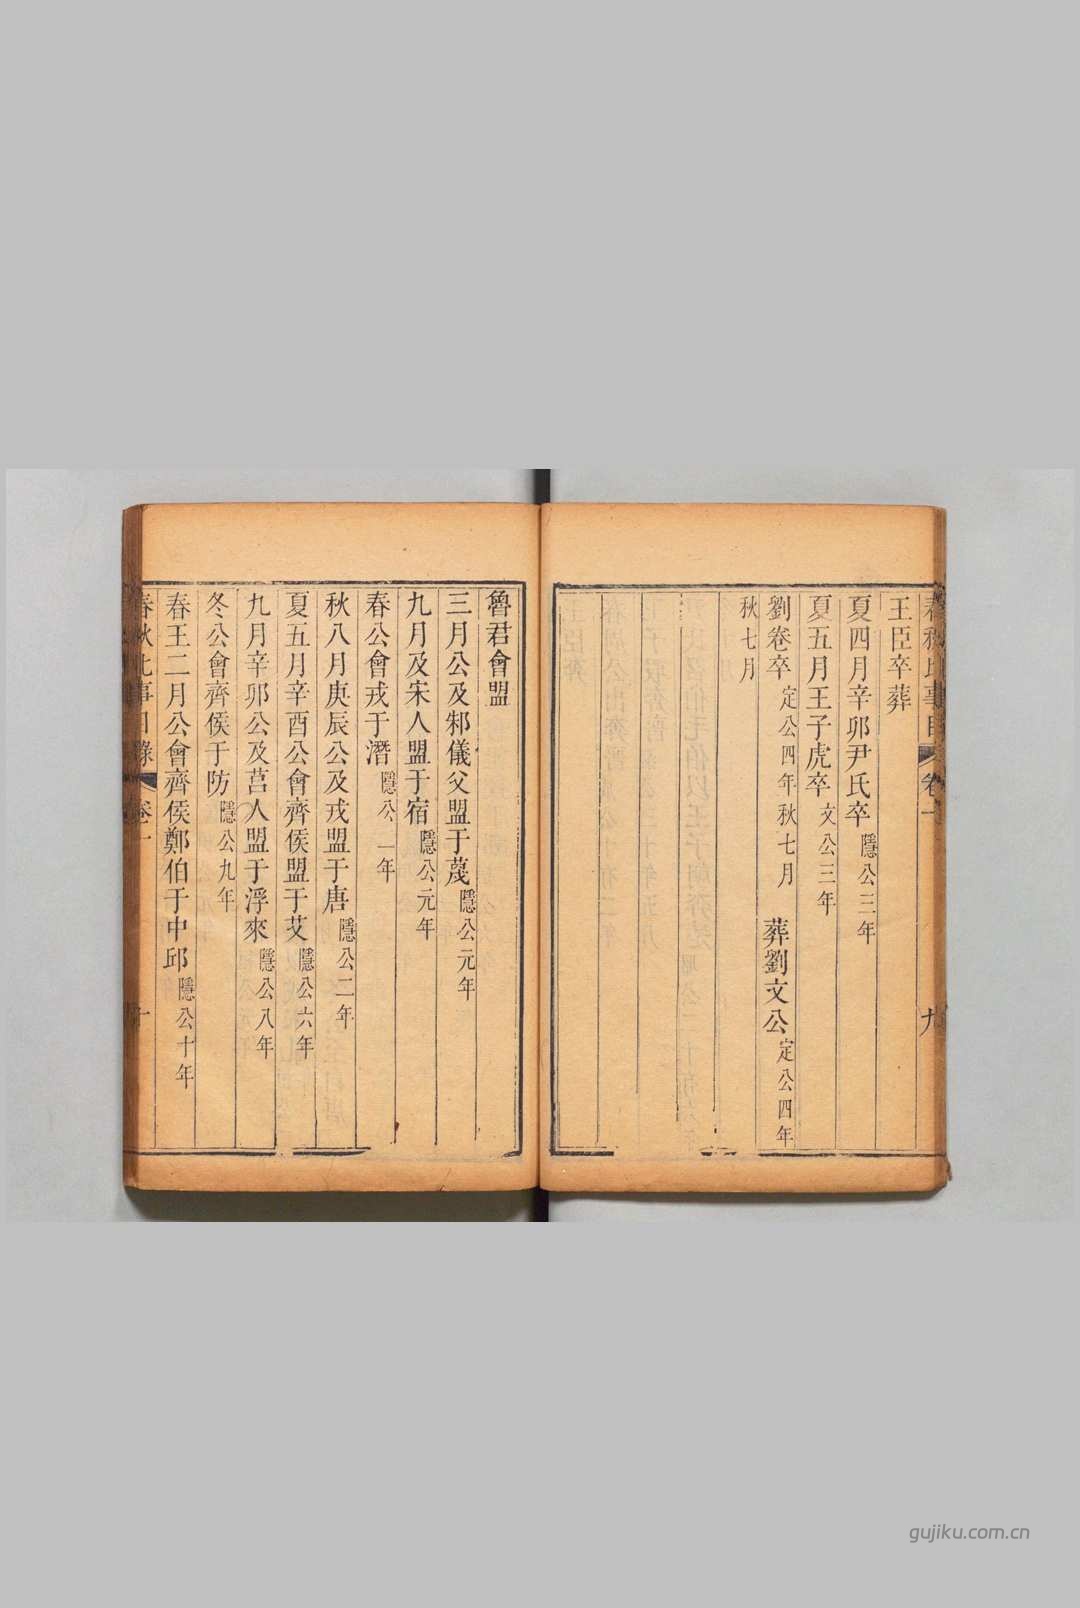 王臣卒葬
夏四月辛卯尹氏卒 隱公三年
夏五月王子虎卒 文公三年
劉卷卒 定公四年秋七月 葬劉文公 定公四年
秋七月
春秋比事目 卷一 九
魯君會盟
三月公及邾儀父盟于蔑 隱公元年
九月及宋人盟于宿 隱公元年
春公會戎于潛 隱公二年
秋八月庚辰公及戎盟于唐 隱公二年
夏五月辛酉公會齊侯盟于艾 隱公六年
九月辛卯公及莒人盟于浮來 隱公八年
冬公會齊侯于防 隱公九年
春王二月公會齊侯鄭伯于中邱 隱公十年
春秋比事目錄 卷一 十
gujiku.com.cn